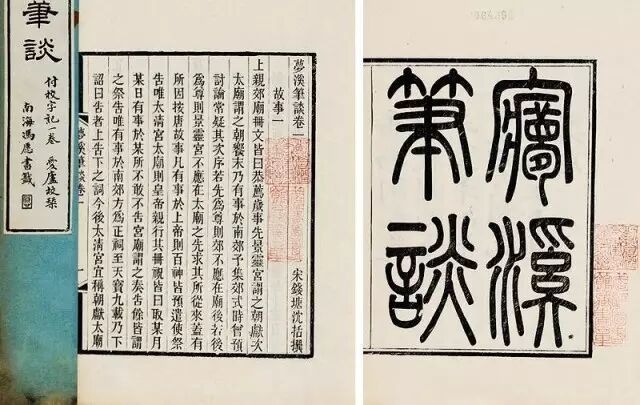 筆談
付校字記一卷 愛廬校栞
南海馮愿書籤
夢溪筆談卷一
宋錢塘沈括撰
故事一
上親郊廟冊文皆曰恭薦歲事先景靈宮謂之朝獻次
太廟謂之朝饗末乃有事於南郊予集郊式時曾預
討論常疑其次序若先爲尊則郊不應在廟後若後
爲尊則景靈宮不應在太廟之先求其所從來蓋有
所因按唐故事凡有事於上帝則百神皆預遣使祭
告唯太清宮太廟則皇帝親行其冊祝皆曰取某月
某日有事於某所不敢不告宮廟謂之奏告餘皆謂
之祭告唯有事於南郊方爲正祠至天寶九載乃下
詔曰告者上告下之詞今後太清宮宜稱朝獻太廟
夢溪筆談卷一
一
夢溪
筆談